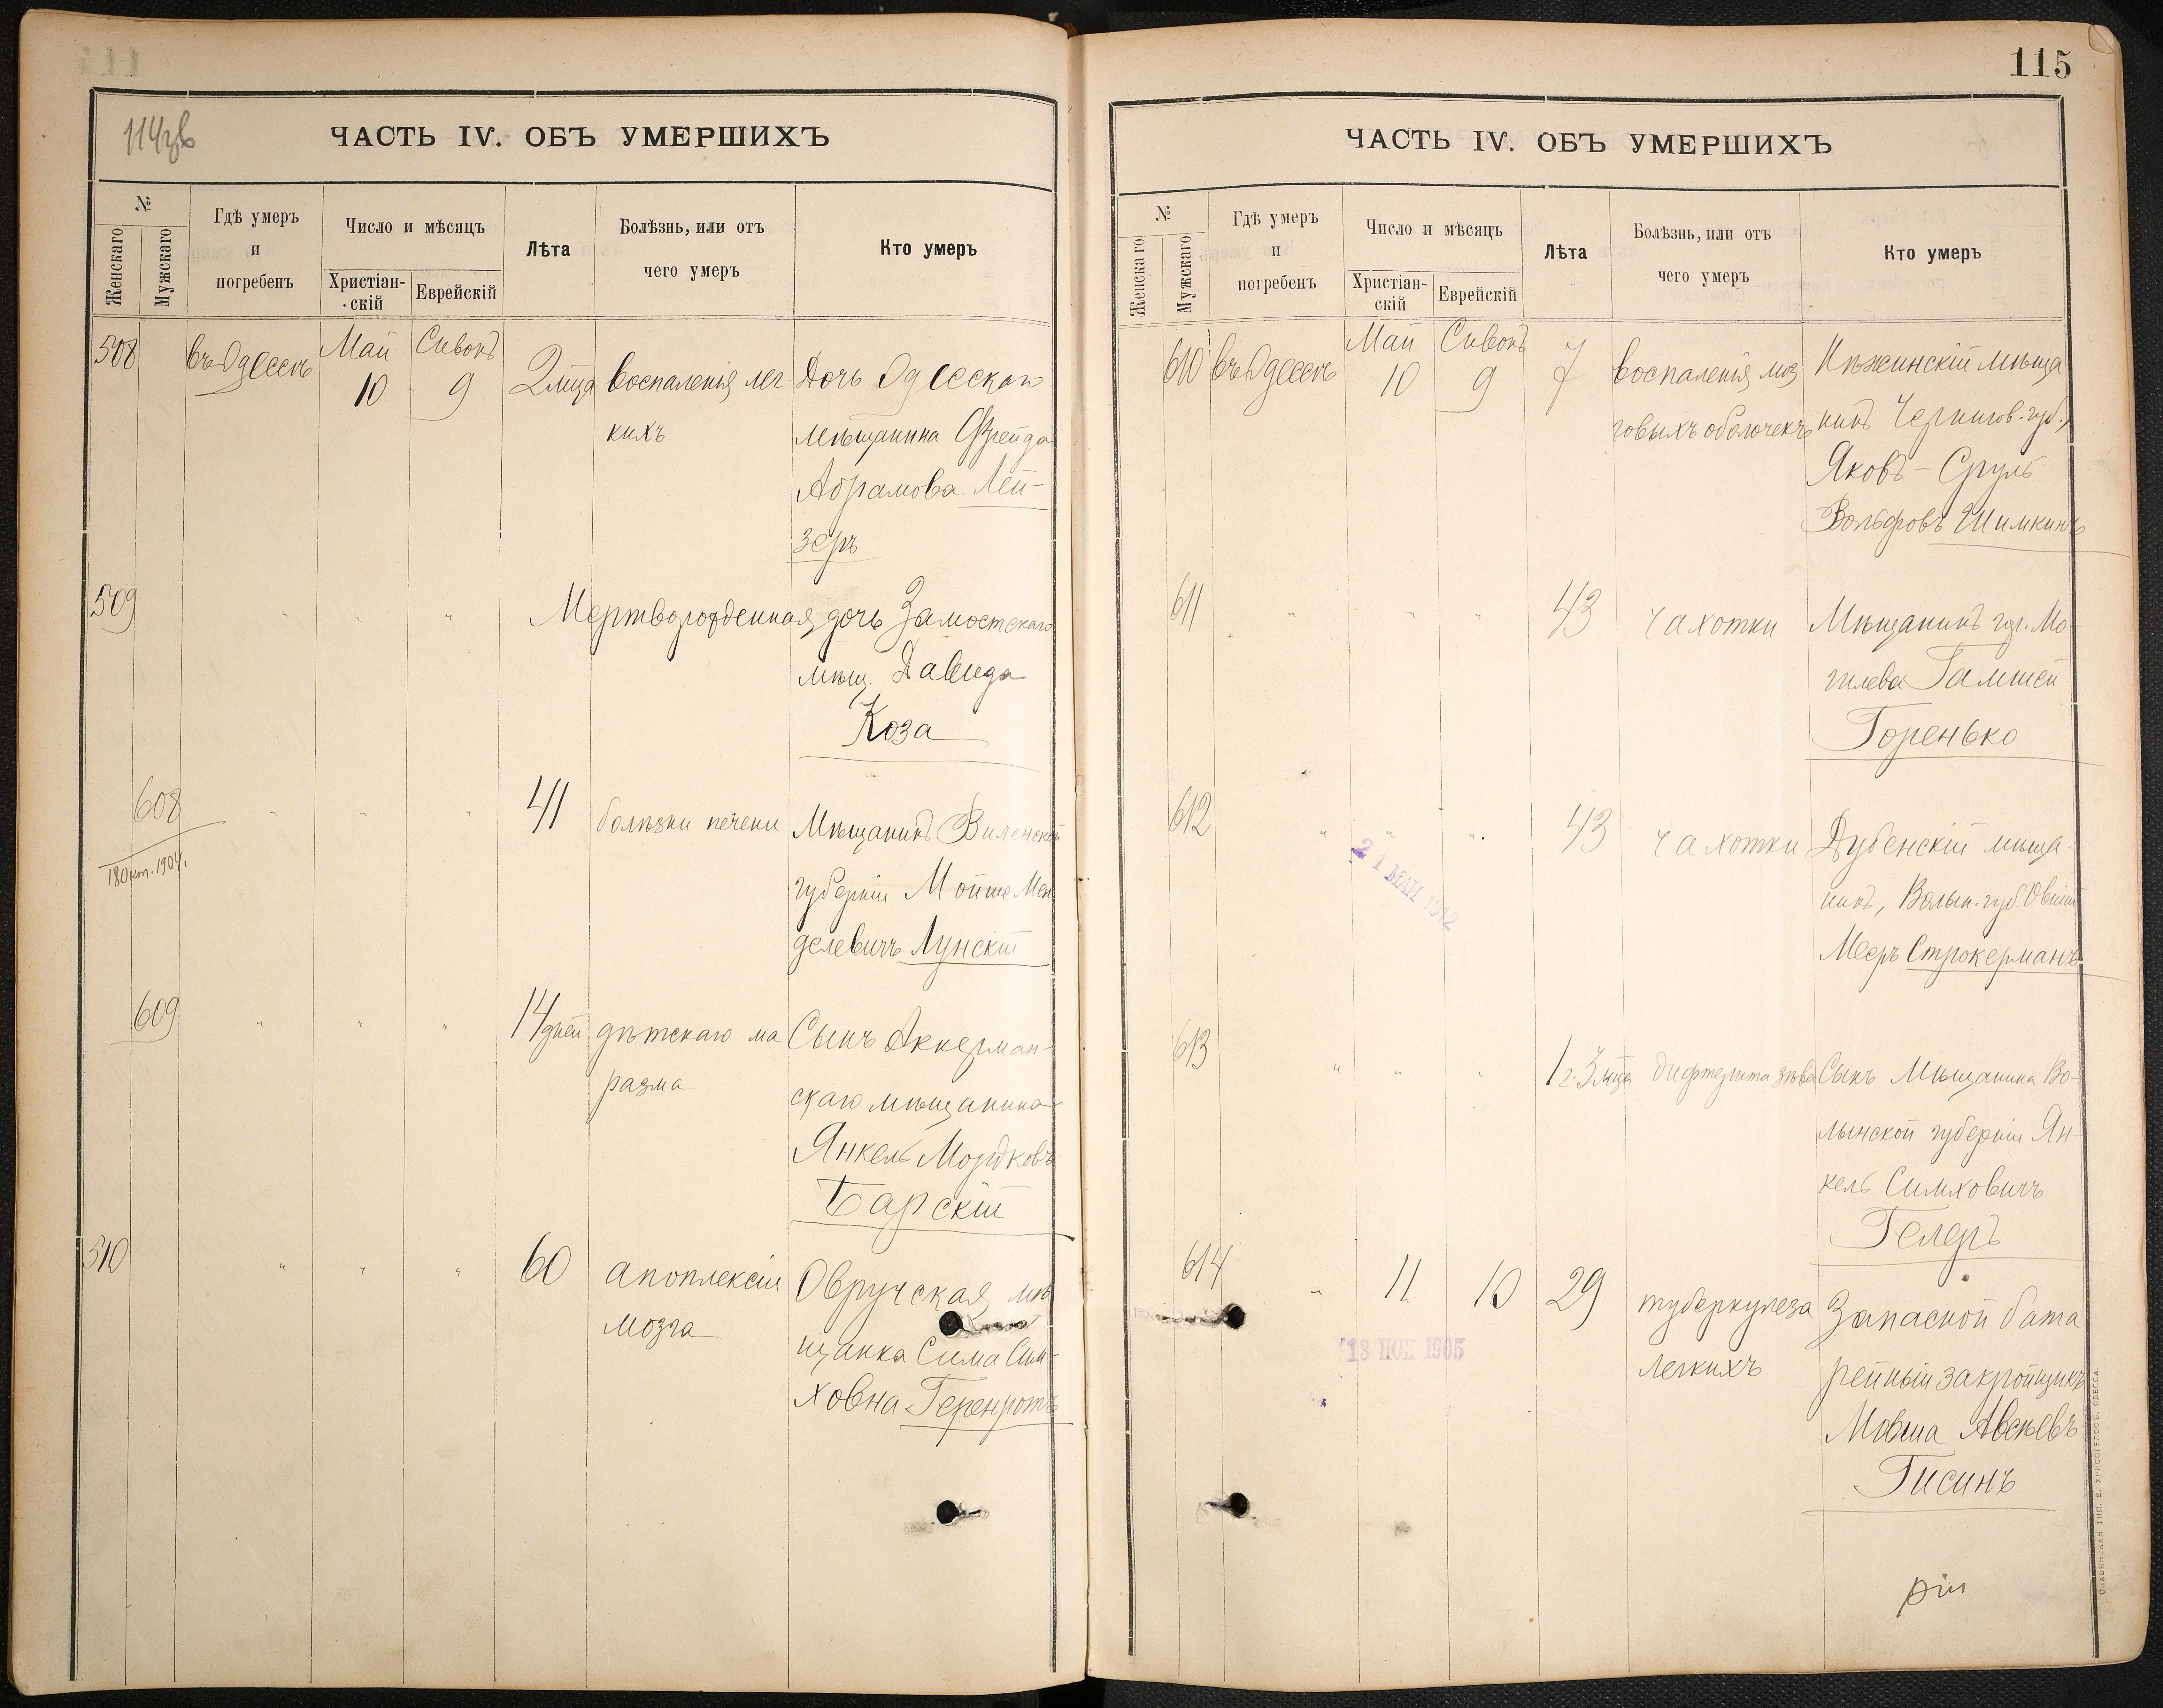 114об
ЧАСТЬ IV. ОБЪ УМЕРШИХЪ
№
Женскаго
Мужскаго
Гдѣ умеръ
и
погребенъ
Число и мѣсяцъ
Христіан-
скій
Еврейскій
Лѣта
Болѣзнь, или отъ
чего умеръ
Кто умеръ
508 въ Одессѣ Май 10 Сивонъ 9 2 мца воспаленія лег Дочь Одесскаго
кихъ мѣщанина Фрейда
Абрамова Лей-
зеръ
509 " " " Мертворожденная дочь Замостскаго
мѣщ. Давида
Коза
608 " " " 41 болѣзни печени Мѣщанинъ Виленской
18 окт. 1904.
губерніи Мойше Мен
делевичъ Лунскій
609 " " " 14 дней дѣтскаго ма Сынъ Аккерман-
разма скаго мѣщанина
Янкель Мордковъ
Барскій
510 " " " 60 апоплексіи Овручская мѣ
мозга щанка Сима Сим-
ховна Геренротъ
115
ЧАСТЬ IV. ОБЪ УМЕРШИХЪ
№
Женскаго
Мужскаго
Гдѣ умеръ
и
погребенъ
Число и мѣсяцъ
Христіан-
скій
Еврейскій
Лѣта
Болѣзнь, или отъ
чего умеръ
Кто умеръ
610 въ Одессѣ Май 10 Сивонъ 9 7 воспаленія моз Нѣжинскій мѣща
говыхъ оболочекъ нинъ Чернигов. губ.,
Яковъ-Сруль
Вольфовъ Шимкинъ
611 " " " 43 чахотки Мѣщанинъ гор. Мо
гилева Гамшей
Горенько
612 " " " 43 чахотки Дубенскій мѣща-
21 МАЙ 1912
нинъ, Волын. губ. Овшій
Мееръ Строкерманъ
613 " " " 1 г. 3 мца дифтерита зѣва Сынъ Мѣщанина Во-
лынской губерніи Ян-
кель Симховичъ
Гелеръ
614 " 11 10 29 туберкулеза Запасной бата
13 НОЯ 1905
легкихъ рейный закройщикъ
Мовша Авсѣевъ
Гисинъ
СЛАВЯНСКАЯ ТИП. Е. ХРИСОГЕЛОСЪ, ОДЕССА.